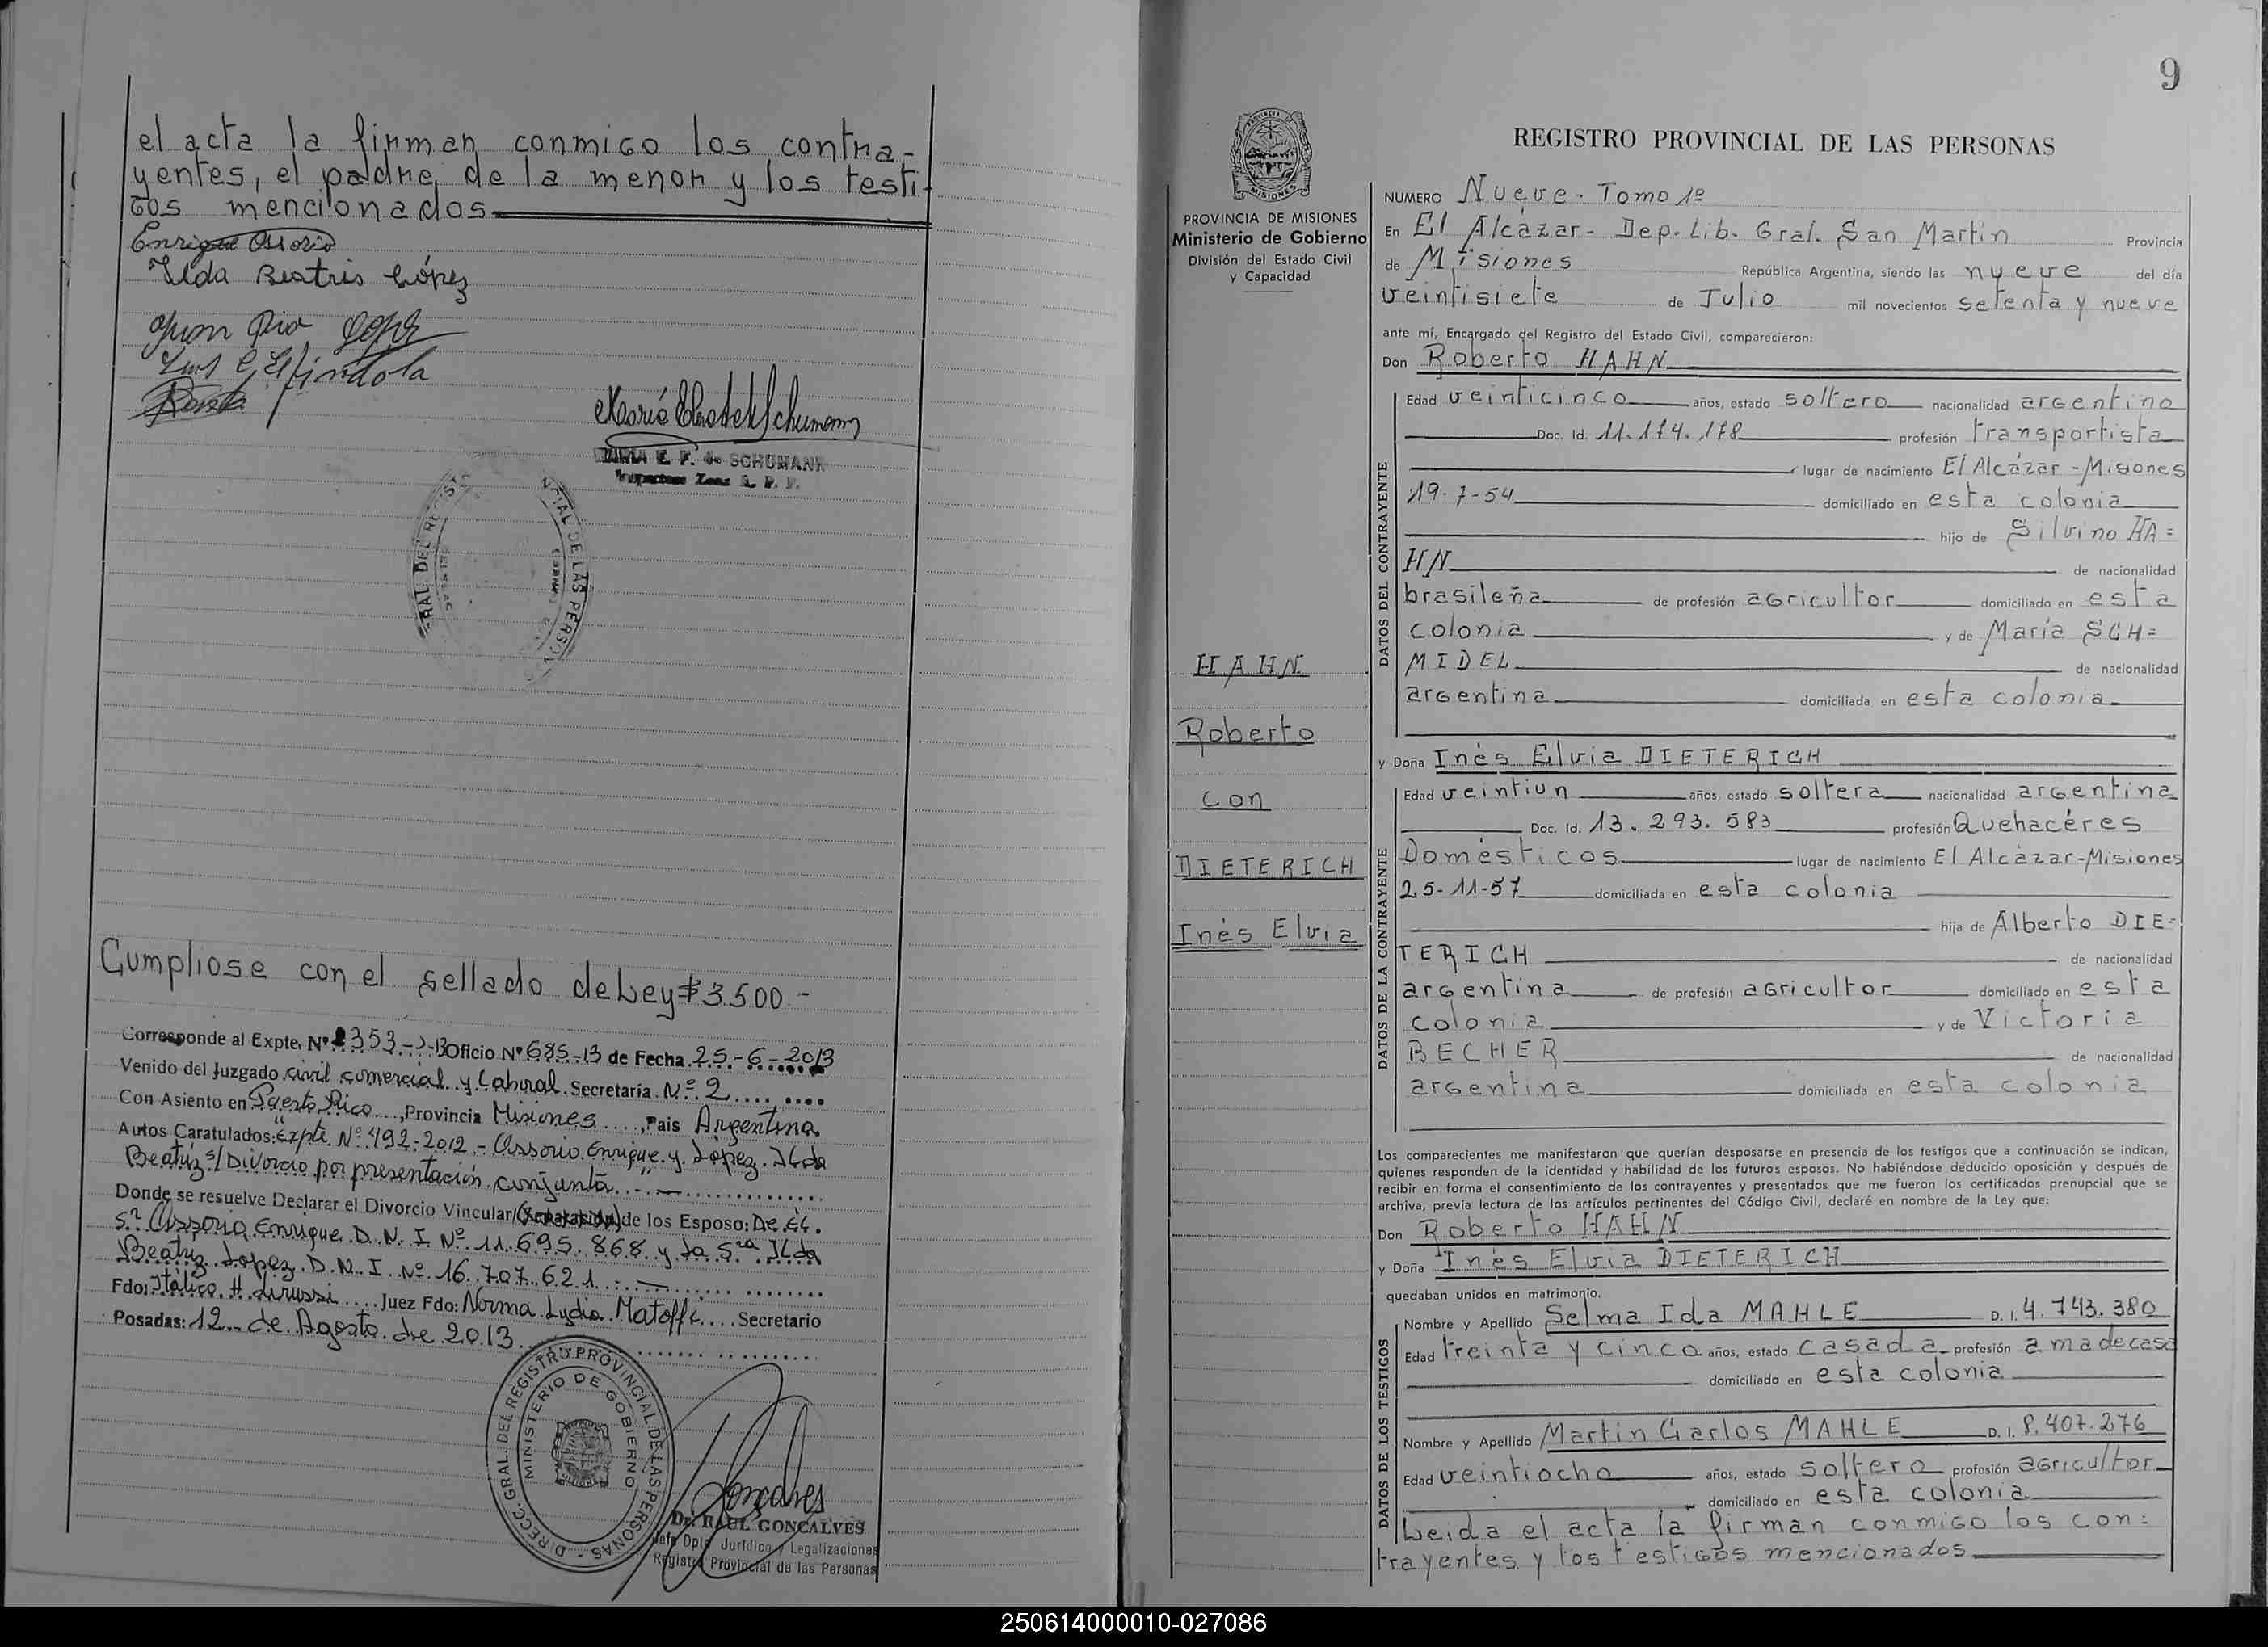 el acta la firman conmigo los contra-
yentes, el padre de la menor y los testi-
gos mencionados
Enrique Ossorio
Ilda Beatris López
Juan Pio
Luis
MARIA E. F. de SCHUMANN
Cumpliose con el sellado de Ley $ 3.500.-
Corresponde al Expte. Nº 353-J-13 Oficio Nº 685-13 de Fecha 25-6-2013
Venido del Juzgado civil comercial y Laboral Secretaría Nº 2
Con Asiento en Puerto Rico, Provincia Misiones, Pais Argentina
Autos Caratulados: "Expte. Nº 492-2012 - Ossorio Enrique y Lopez Ilda
Beatriz s/ Divorcio por presentación conjunta.-"
Donde se resuelve Declarar el Divorcio Vincular/(Separación) de los Esposo: De El
Sr Ossorio Enrique D.N.I Nº 11.695.868 y la Sra Ilda
Beatriz Lopez D.N.I. Nº 16.707.621.-
Fdo: Itálico H. Juez Fdo: Norma Lydia Secretario
Posadas: 12 de Agosto de 2013
DIRECC. GRAL. DEL REGISTRO PROVINCIAL DE LAS PERSONAS
MINISTERIO DE GOBIERNO
Dr. RAUL GONCALVES
Jefe Dpto Jurídico y Legalizaciones
Registro Provincial de las Personas
9
PROVINCIA DE MISIONES
Ministerio de Gobierno
División del Estado Civil
y Capacidad
HAHN
Roberto
con
DIETERICH
Inés Elvia
REGISTRO PROVINCIAL DE LAS PERSONAS
NUMERO Nueve. Tomo 1º
En El Alcázar - Dep. Lib. Gral. San Martín Provincia
de Misiones República Argentina, siendo las nueve del día
veintisiete de Julio mil novecientos setenta y nueve
ante mí, Encargado del Registro del Estado Civil, comparecieron:
Don Roberto HAHN
DATOS DEL CONTRAYENTE
Edad veinticinco años, estado soltero nacionalidad argentina
Doc. Id. 11.174.178 profesión transportista
lugar de nacimiento El Alcázar - Misiones
19-7-54 domiciliado en esta colonia
hijo de Silvino HA=
HN de nacionalidad
brasileña de profesión agricultor domiciliado en esta
colonia y de María SCH=
MIDEL de nacionalidad
argentina domiciliada en esta colonia
y Doña Inés Elvia DIETERICH
DATOS DE LA CONTRAYENTE
Edad veintiun años, estado soltera nacionalidad argentina
Doc. Id. 13.293.583 profesión Quehacéres
Domésticos lugar de nacimiento El Alcázar-Misiones
25-11-57 domiciliada en esta colonia
hija de Alberto DIE=
TERICH de nacionalidad
argentina de profesión agricultor domiciliado en esta
colonia y de Victoria
BECHER de nacionalidad
argentina domiciliada en esta colonia
Los comparecientes me manifestaron que querían desposarse en presencia de los testigos que a continuación se indican,
quienes responden de la identidad y habilidad de los futuros esposos. No habiéndose deducido oposición y después de
recibir en forma el consentimiento de los contrayentes y presentados que me fueron los certificados prenupcial que se
archiva, previa lectura de los artículos pertinentes del Código Civil, declaré en nombre de la Ley que:
Don Roberto HAHN
y Doña Inés Elvia DIETERICH
quedaban unidos en matrimonio.
DATOS DE LOS TESTIGOS
Nombre y Apellido Selma Ida MAHLE D. I. 4.743.380
Edad treinta y cinco años, estado casada profesión ama de casa
domiciliado en esta colonia
Nombre y Apellido Martin Carlos MAHLE D. I. 8.407.276
Edad veintiocho años, estado soltero profesión agricultor
domiciliado en esta colonia
Leida el acta la firman conmigo los con=
trayentes y los testigos mencionados
250614000010-027086